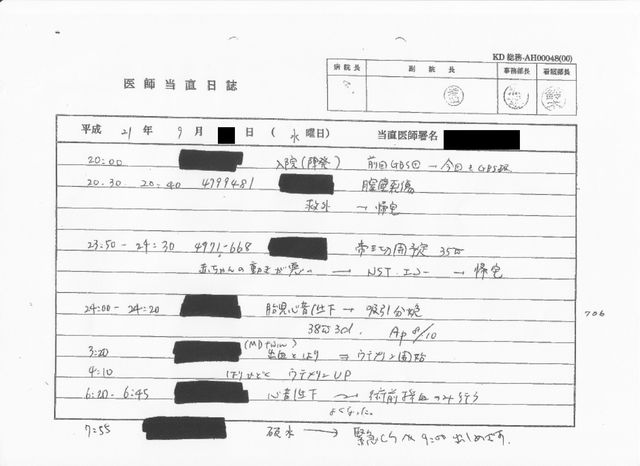 KD 総務-AH00048(00)
医師当直日誌
病院長 副院長 事務部長 看護部長
平成 21 年 9 月 日 ( 水 曜日) 当直医師署名
20:00 入院(陣発) 前回GBS⊕ → 今回も GBS
20.30 20:40 4799481 腟壁裂傷
救外 → 帰宅
23:50 - 24:30 4971-668 帝王切開予定 35
赤ちゃんの動きが悪い → NST.エコー → 帰宅
24:00 - 24:20 胎児心音低下 → 吸引分娩
706
38w30 Ap 8/10
(MD twin)
3:20 出血とはり ⇒ ウテメリン開始
4:10 はりひどく ウテメリン UP
6:20 - 6:45 心音低下 → 術前採血のみ行う
よくなった.
7:55 破水 → 緊急CS 9:00 です.